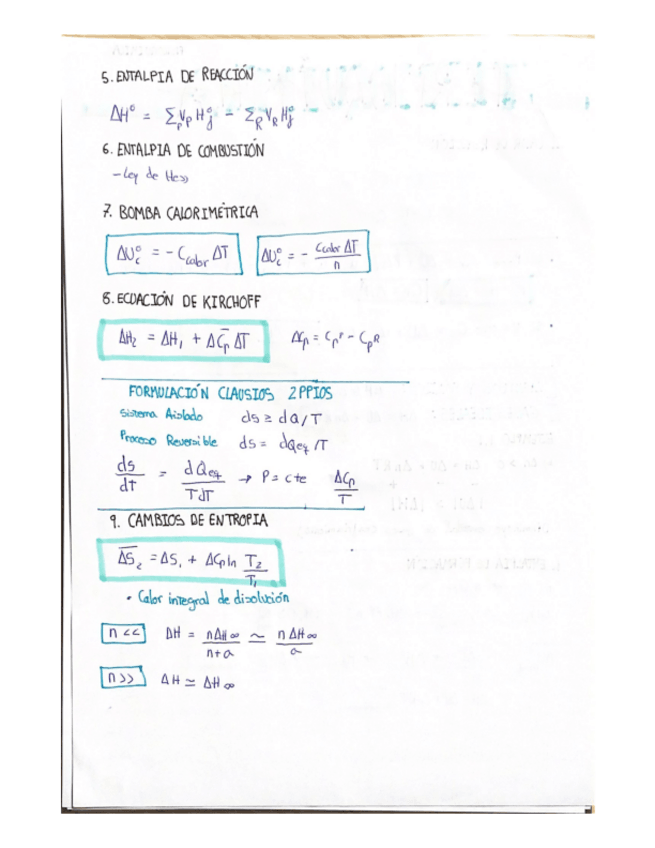 5. ENTALPIA DE REACCIÓN
ΔH° = Σ_P ν_P H_f° - Σ_R ν_R H_f°
6. ENTALPIA DE COMBUSTIÓN
- Ley de Hess
7. BOMBA CALORIMÉTRICA
ΔU_c° = - C_calor ΔT    ΔU_c° = - C_calor ΔT / n
8. ECUACIÓN DE KIRCHOFF
ΔH₂ = ΔH₁ + Δ\overline{C_p} ΔT    ΔC_p = C_p^P - C_p^R
FORMULACIÓN CLAUSIOS 2 PPIOS
Sistema Aislado    ds ≥ dQ/T
Proceso Reversible    ds = dQ_eq/T
ds/dT = dQ_eq/TdT → P = cte    ΔC_p/T
9. CAMBIOS DE ENTROPIA
\overline{ΔS₂} = ΔS₁ + ΔC_p ln T₂/T₁
• Calor integral de disolución
n <<    ΔH = nΔH∞/n+a ≃ nΔH∞/a
n >>    ΔH ≃ ΔH∞